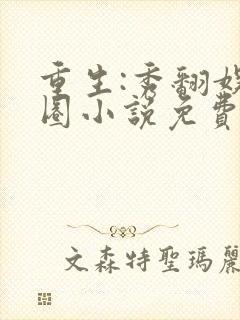 重生:秀翻娛
圈小說免費
文森特聖瑪麗